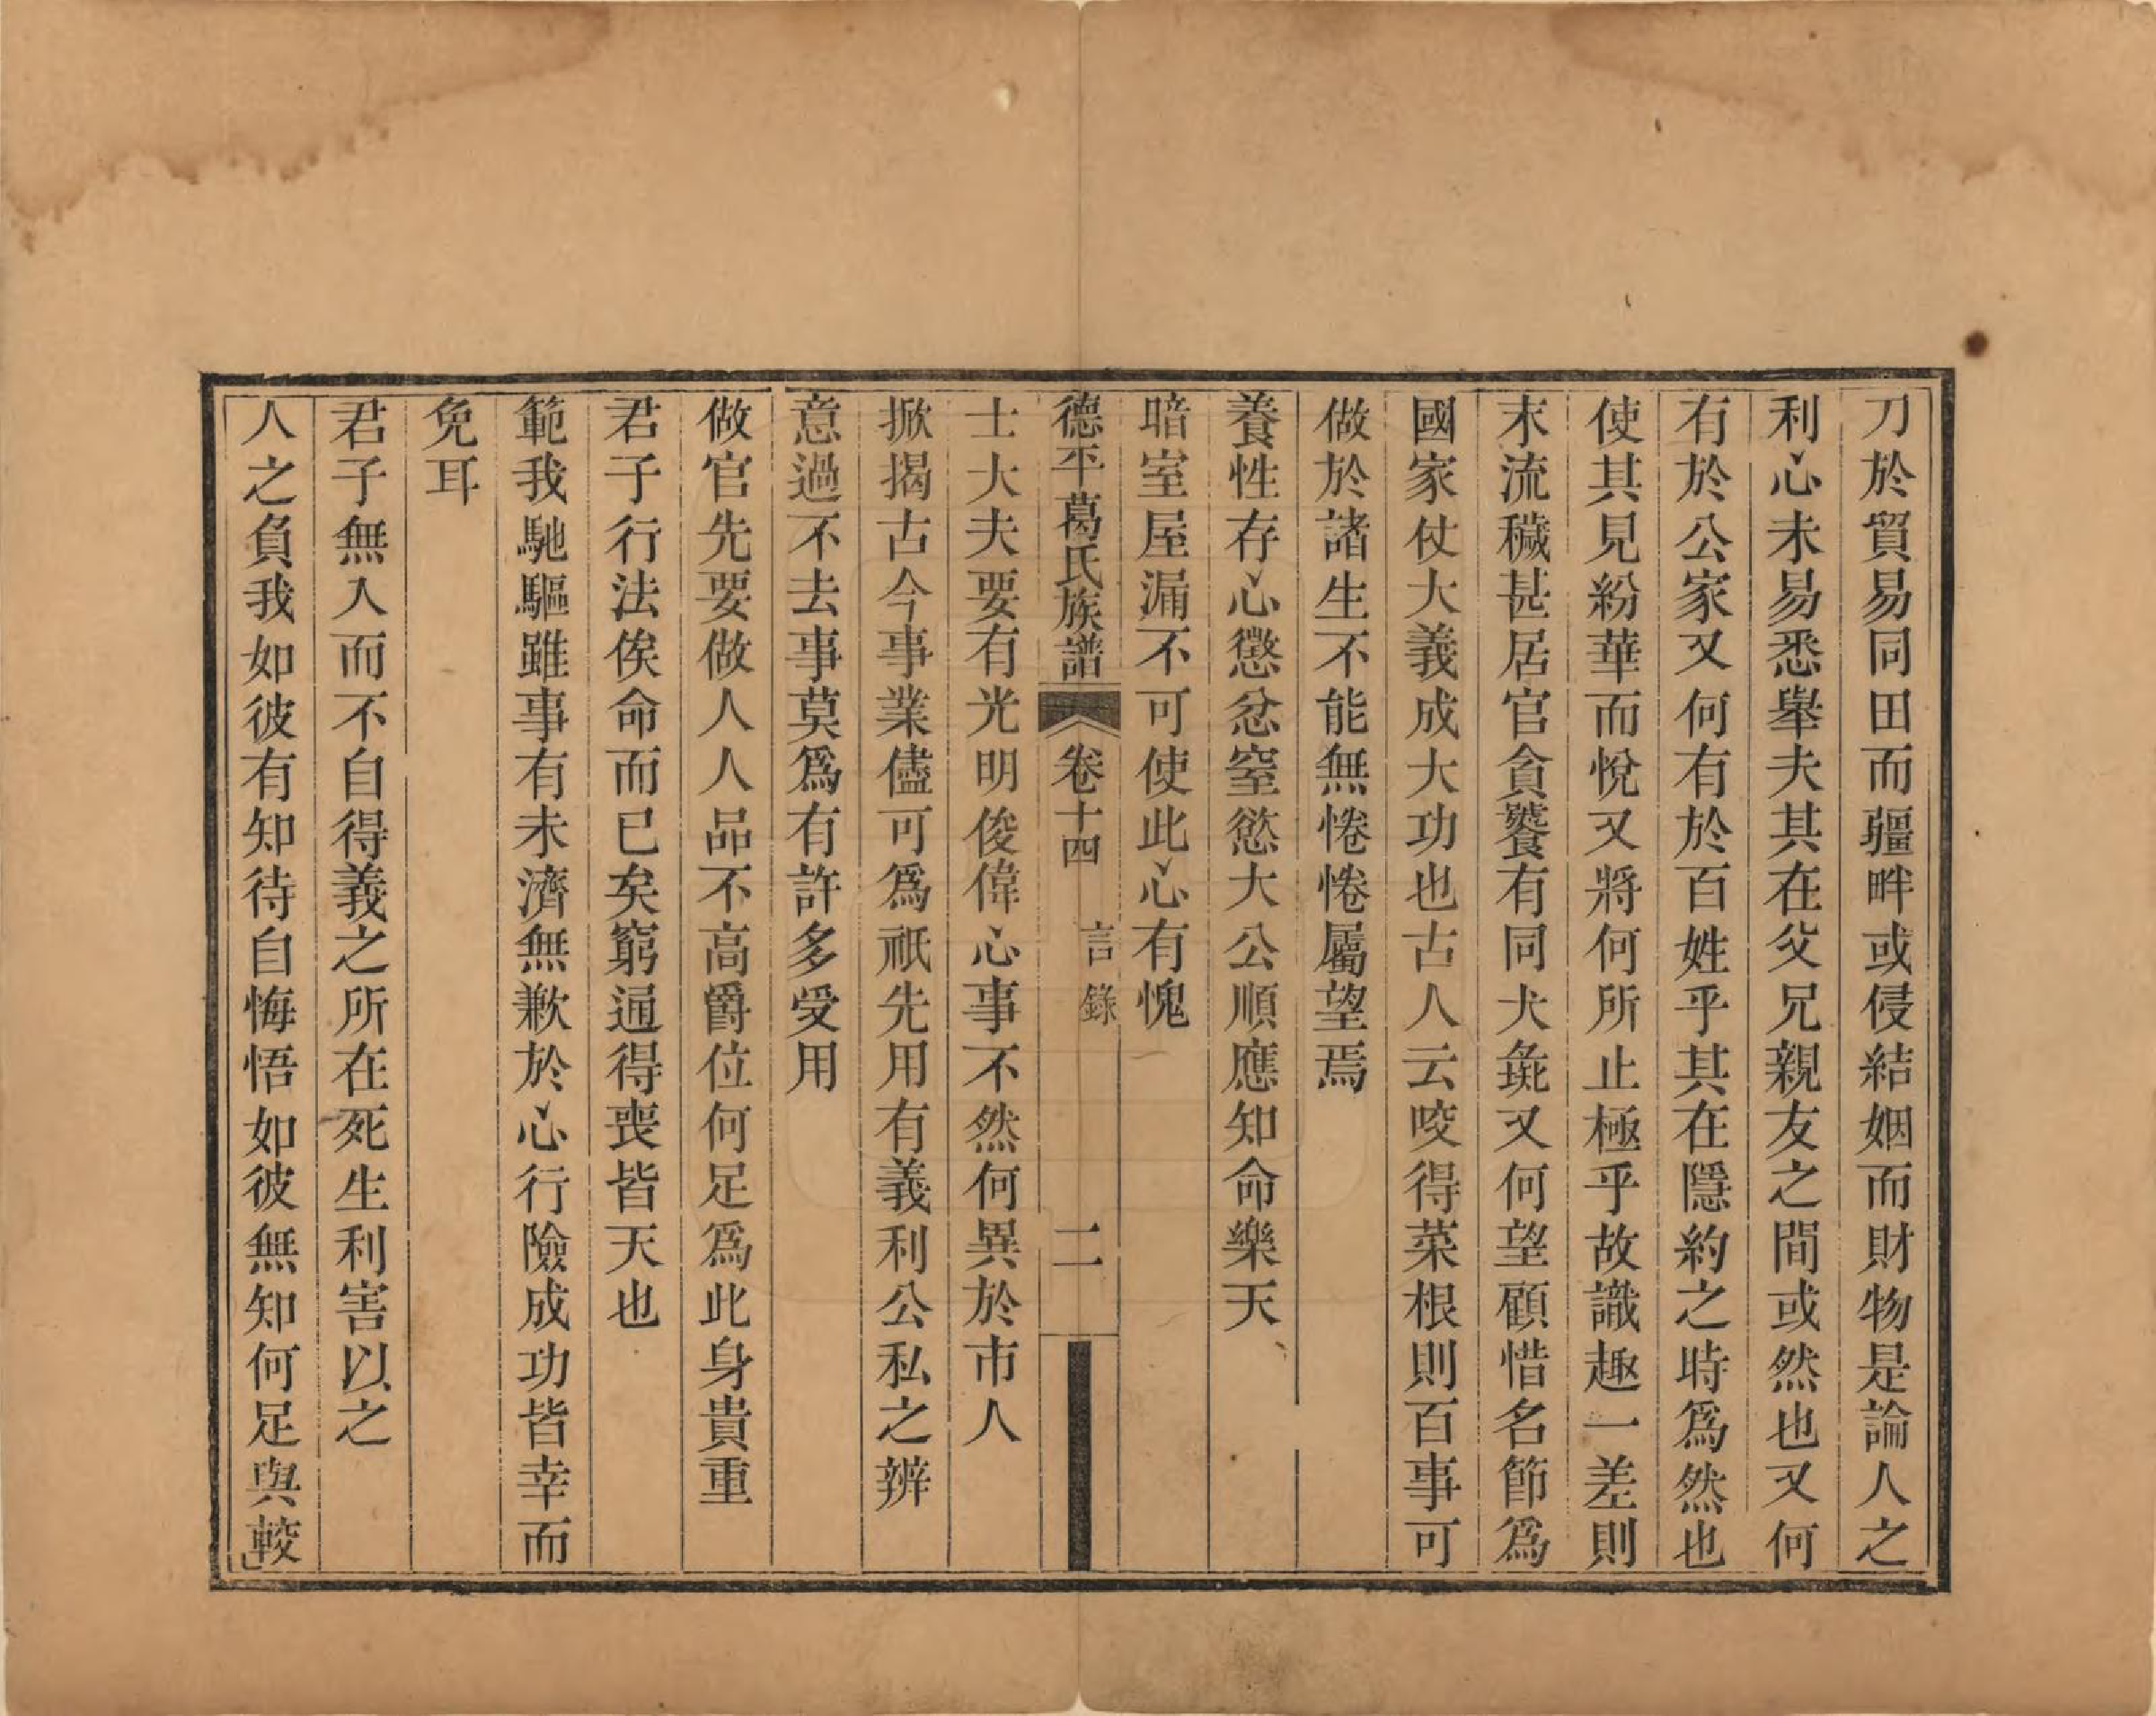 刀於貿易同田而疆畔或侵結姻而財物是論人之
利心未易悉舉夫其在父兄親友之間或然也又何
有於公家又何有於百姓乎其在隱約之時爲然也
使其見紛華而悅又將何所止極乎故識趣一差則
末流穢甚居官貪饕有同犬彘又何望顧惜名節爲
國家仗大義成大功也古人云咬得菜根則百事可
做於諸生不能無惓惓屬望焉
養性存心懲忿窒慾大公順應知命樂天
暗室屋漏不可使此心有愧
德平葛氏族譜 卷十四 言錄 二
士大夫要有光明俊偉心事不然何異於市人
掀揭古今事業儘可爲祇先用有義利公私之辨
意過不去事莫爲有許多受用
做官先要做人人品不高爵位何足爲此身貴重
君子行法俟命而已矣窮通得喪皆天也
範我馳驅雖事有未濟無歉於心行險成功皆幸而
免耳
君子無入而不自得義之所在死生利害以之
人之負我如彼有知待自悔悟如彼無知何足與較